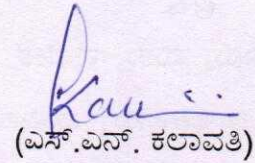 (ಎಸ್.ಎನ್. ಕಲಾವತಿ)